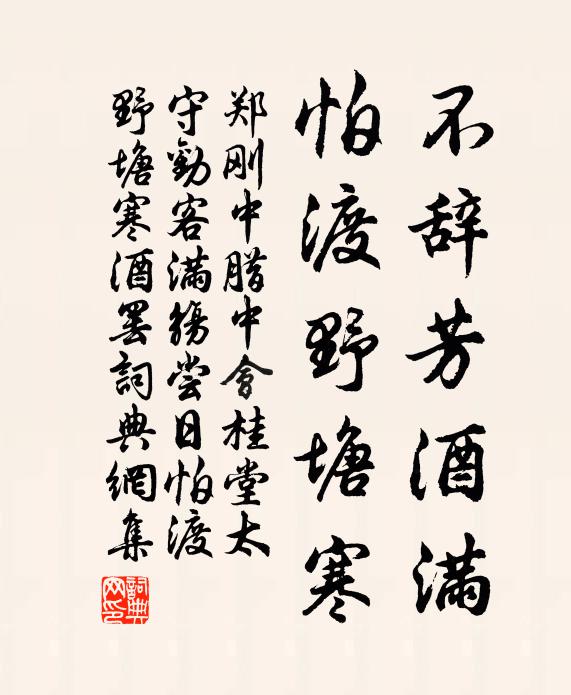 不辞芳酒满
怕渡野塘寒
郑刚中腊中会桂堂太
守勸客满觞尝日怕渡
野塘寒酒罢詞典網集
詞典网印